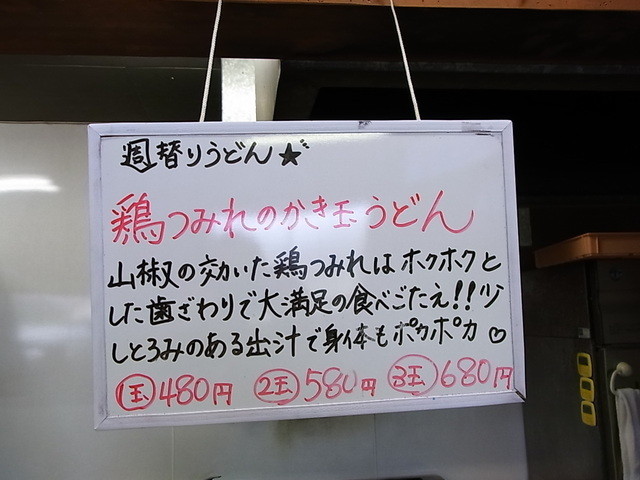 週替りうどん★
鶏つみれのかき玉うどん
山椒の効いた鶏つみれはホクホクと
した歯ざわりで大満足の食べごたえ!!少
しとろみのある出汁で身体もポカポカ♡
1玉480円 2玉580円 3玉680円